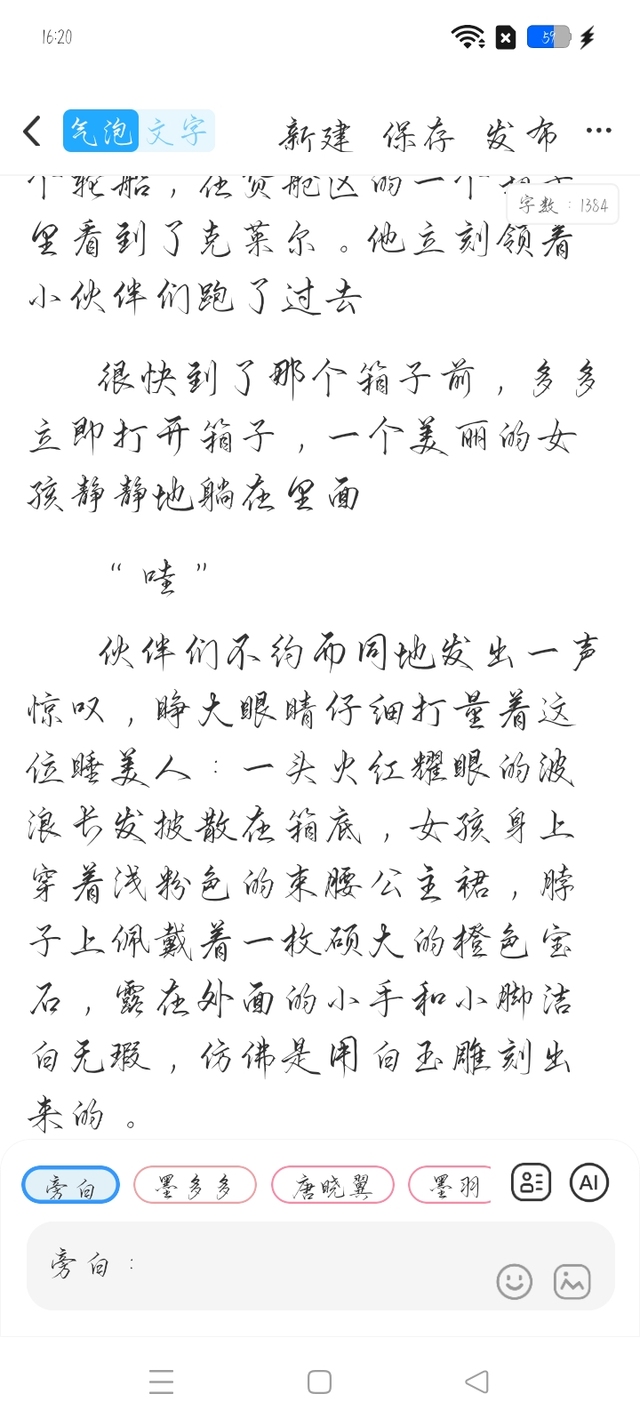 16:20
59
气泡 文字 新建 保存 发布
个轮船，在货舱区的一个箱子
字数：1384
里看到了克莱尔。他立刻领着
小伙伴们跑了过去
很快到了那个箱子前，多多
立即打开箱子，一个美丽的女
孩静静地躺在里面
“哇”
伙伴们不约而同地发出一声
惊叹，睁大眼睛仔细打量着这
位睡美人：一头火红耀眼的波
浪长发披散在箱底，女孩身上
穿着浅粉色的束腰公主裙，脖
子上佩戴着一枚硕大的橙色宝
石，露在外面的小手和小脚洁
白无瑕，仿佛是用白玉雕刻出
来的。
旁白 墨多多 唐晓翼 墨羽 AI
旁白：